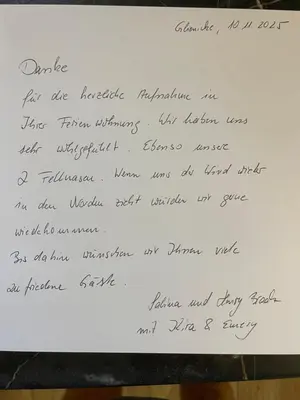 Glowitz, 10.11.2025
Danke
für die herzliche Aufnahme in
Ihrer Ferienwohnung. Wir haben uns
sehr wohlgefühlt. Ebenso unsere
2 Fellnasen. Wenn uns der Wind wieder
in den Norden zieht würden wir gerne
wiederkommen.
Bis dahin wünschen wir Ihnen viele
zufriedene Gäste.
Sabina und
mit Kira & Emery